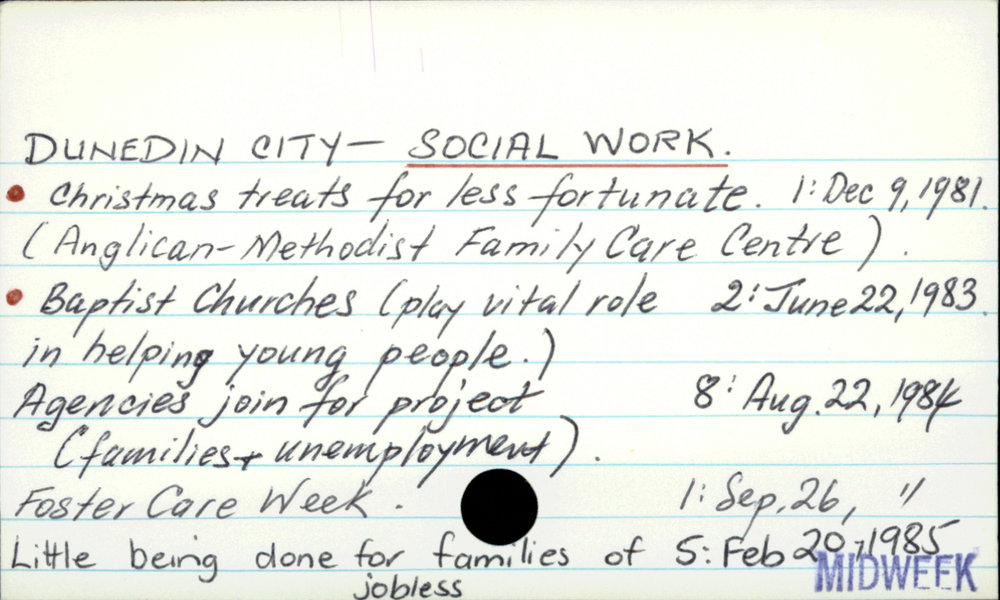 DUNEDIN CITY— SOCIAL WORK.
• Christmas treats for less fortunate. 1: Dec 9, 1981.
(Anglican-Methodist Family Care Centre).
• Baptist Churches (play vital role 2: June 22, 1983.
in helping young people.)
Agencies join for project 8: Aug. 22, 1984
(families + unemployment).
Foster Care Week. 1: Sep. 26, "
Little being done for families of 5: Feb 20, 1985
jobless
MIDWEEK